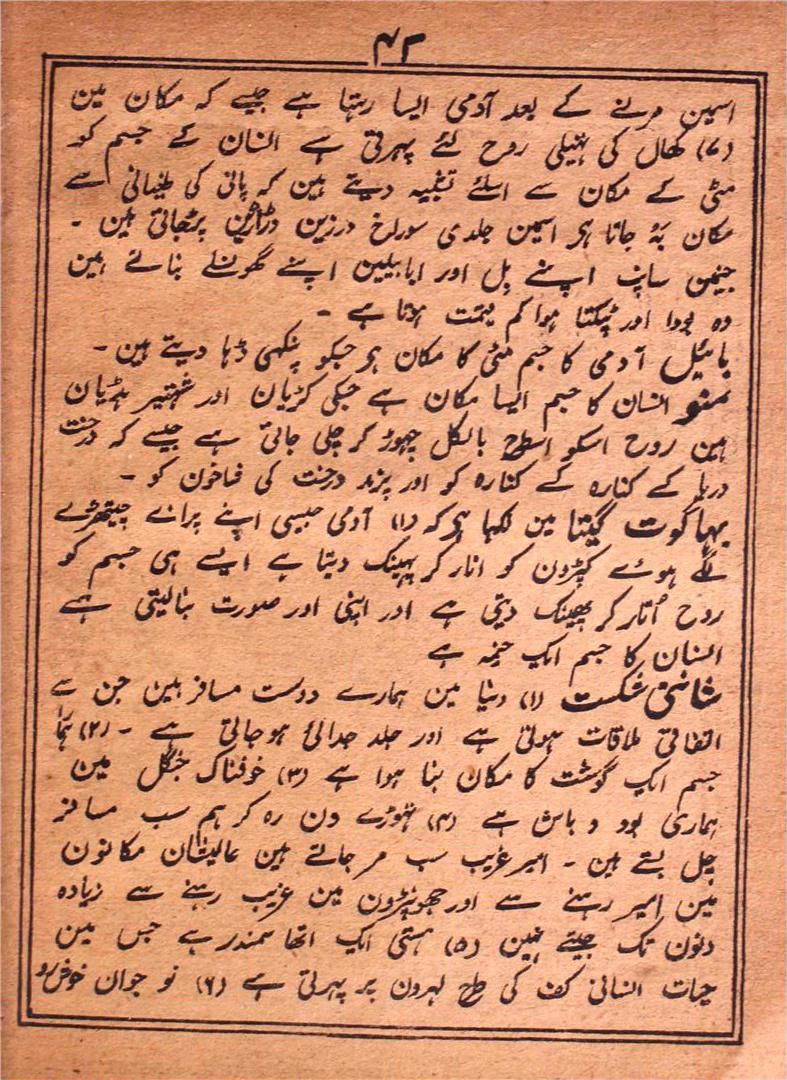 ۴۲
اسمین مرنے کے بعد آدمی ایسا رہتا ہے جیسے کہ مکان مین
(۷) کھال کی تھیلی روح لئے پہرتی ہے انسان کے جسم کو
مٹی کے مکان سے اسلئے تشبیہ دیتے ہین کہ پانی کی طغیانی سے
مکان بہ جاتا ہر اسمین جلدی سوراخ درزین دڑاڑین پڑجاتی ہین ۔
جیمن سانپ اپنے بل اور ابابیلین اپنے گھونسلے بناتے ہین
وہ بودا اور ٹپکتا ہوا کم قیمت ہوتا ہے ۔
بائبل آدمی کا جسم مٹی کا مکان ہر جسکو پنکھی ڈہا دیتے ہین ۔
منو انسان کا جسم ایسا مکان ہے جسکی کڑیان اور شہتیر ہڈیان
ہین روح اسکو اسطرح بالکل چہوڑ کر چلی جاتی ہے جیسے کہ درخت
دریا کے کنارہ کے کنارہ کو اور پرند درخت کی شاخون کو ۔
بہاگوت گیتا مین لکہا ہر کہ (۱) آدمی جیسی اپنے پرانے چیتھڑے
لگے ہوے کپڑون کو اتار کر پہینک دیتا ہے ایسے ہی جسم کو
روح اُتار کر پھینک دیتی ہے اور اپنی اور صورت بنالیتی ہے
انسان کا جسم ایک خیمہ ہے
شانتی شکست (۱) دنیا مین ہمارے دوست مسافر ہین جن سے
اتفاقی ملاقات ہوتی ہے اور جلد جدائی ہوجاتی ہے ۔ (۲) ہمارا
جسم ایک گوشت کا مکان بنا ہوا ہے (۳) خوفناک جنگل مین
ہماری بود و باش ہے (۴) تہوڑے دن رہ کر ہم سب مسافر
چل بستے ہین ۔ امیر غریب سب مر جاتے ہین عالیشان مکانون
مین امیر رہنے سے اور جھونپڑون مین غریب رہنے سے زیادہ
دنون تک جیتے نہین (۵) ہستی ایک اتھا سمندر ہے جس مین
حیات انسانی کف کی طرح لہرون پر پہرتی ہے (۶) نو جوان خوش رو